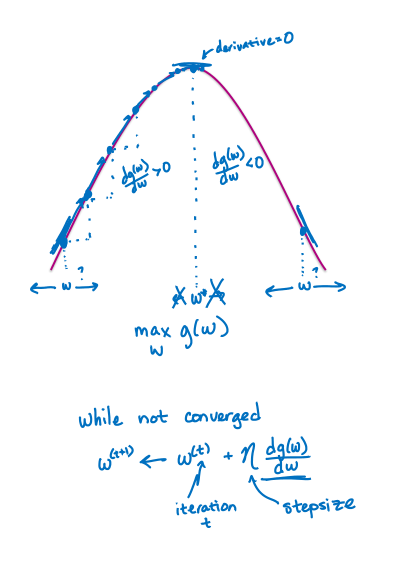 derivative=0
dg(w)/dw >0
dg(w)/dw <0
? w
w*
w ?
max g(w)
w
while not converged
w^(t+1) ← w^(t) + η dg(w)/dw
iteration
t
stepsize